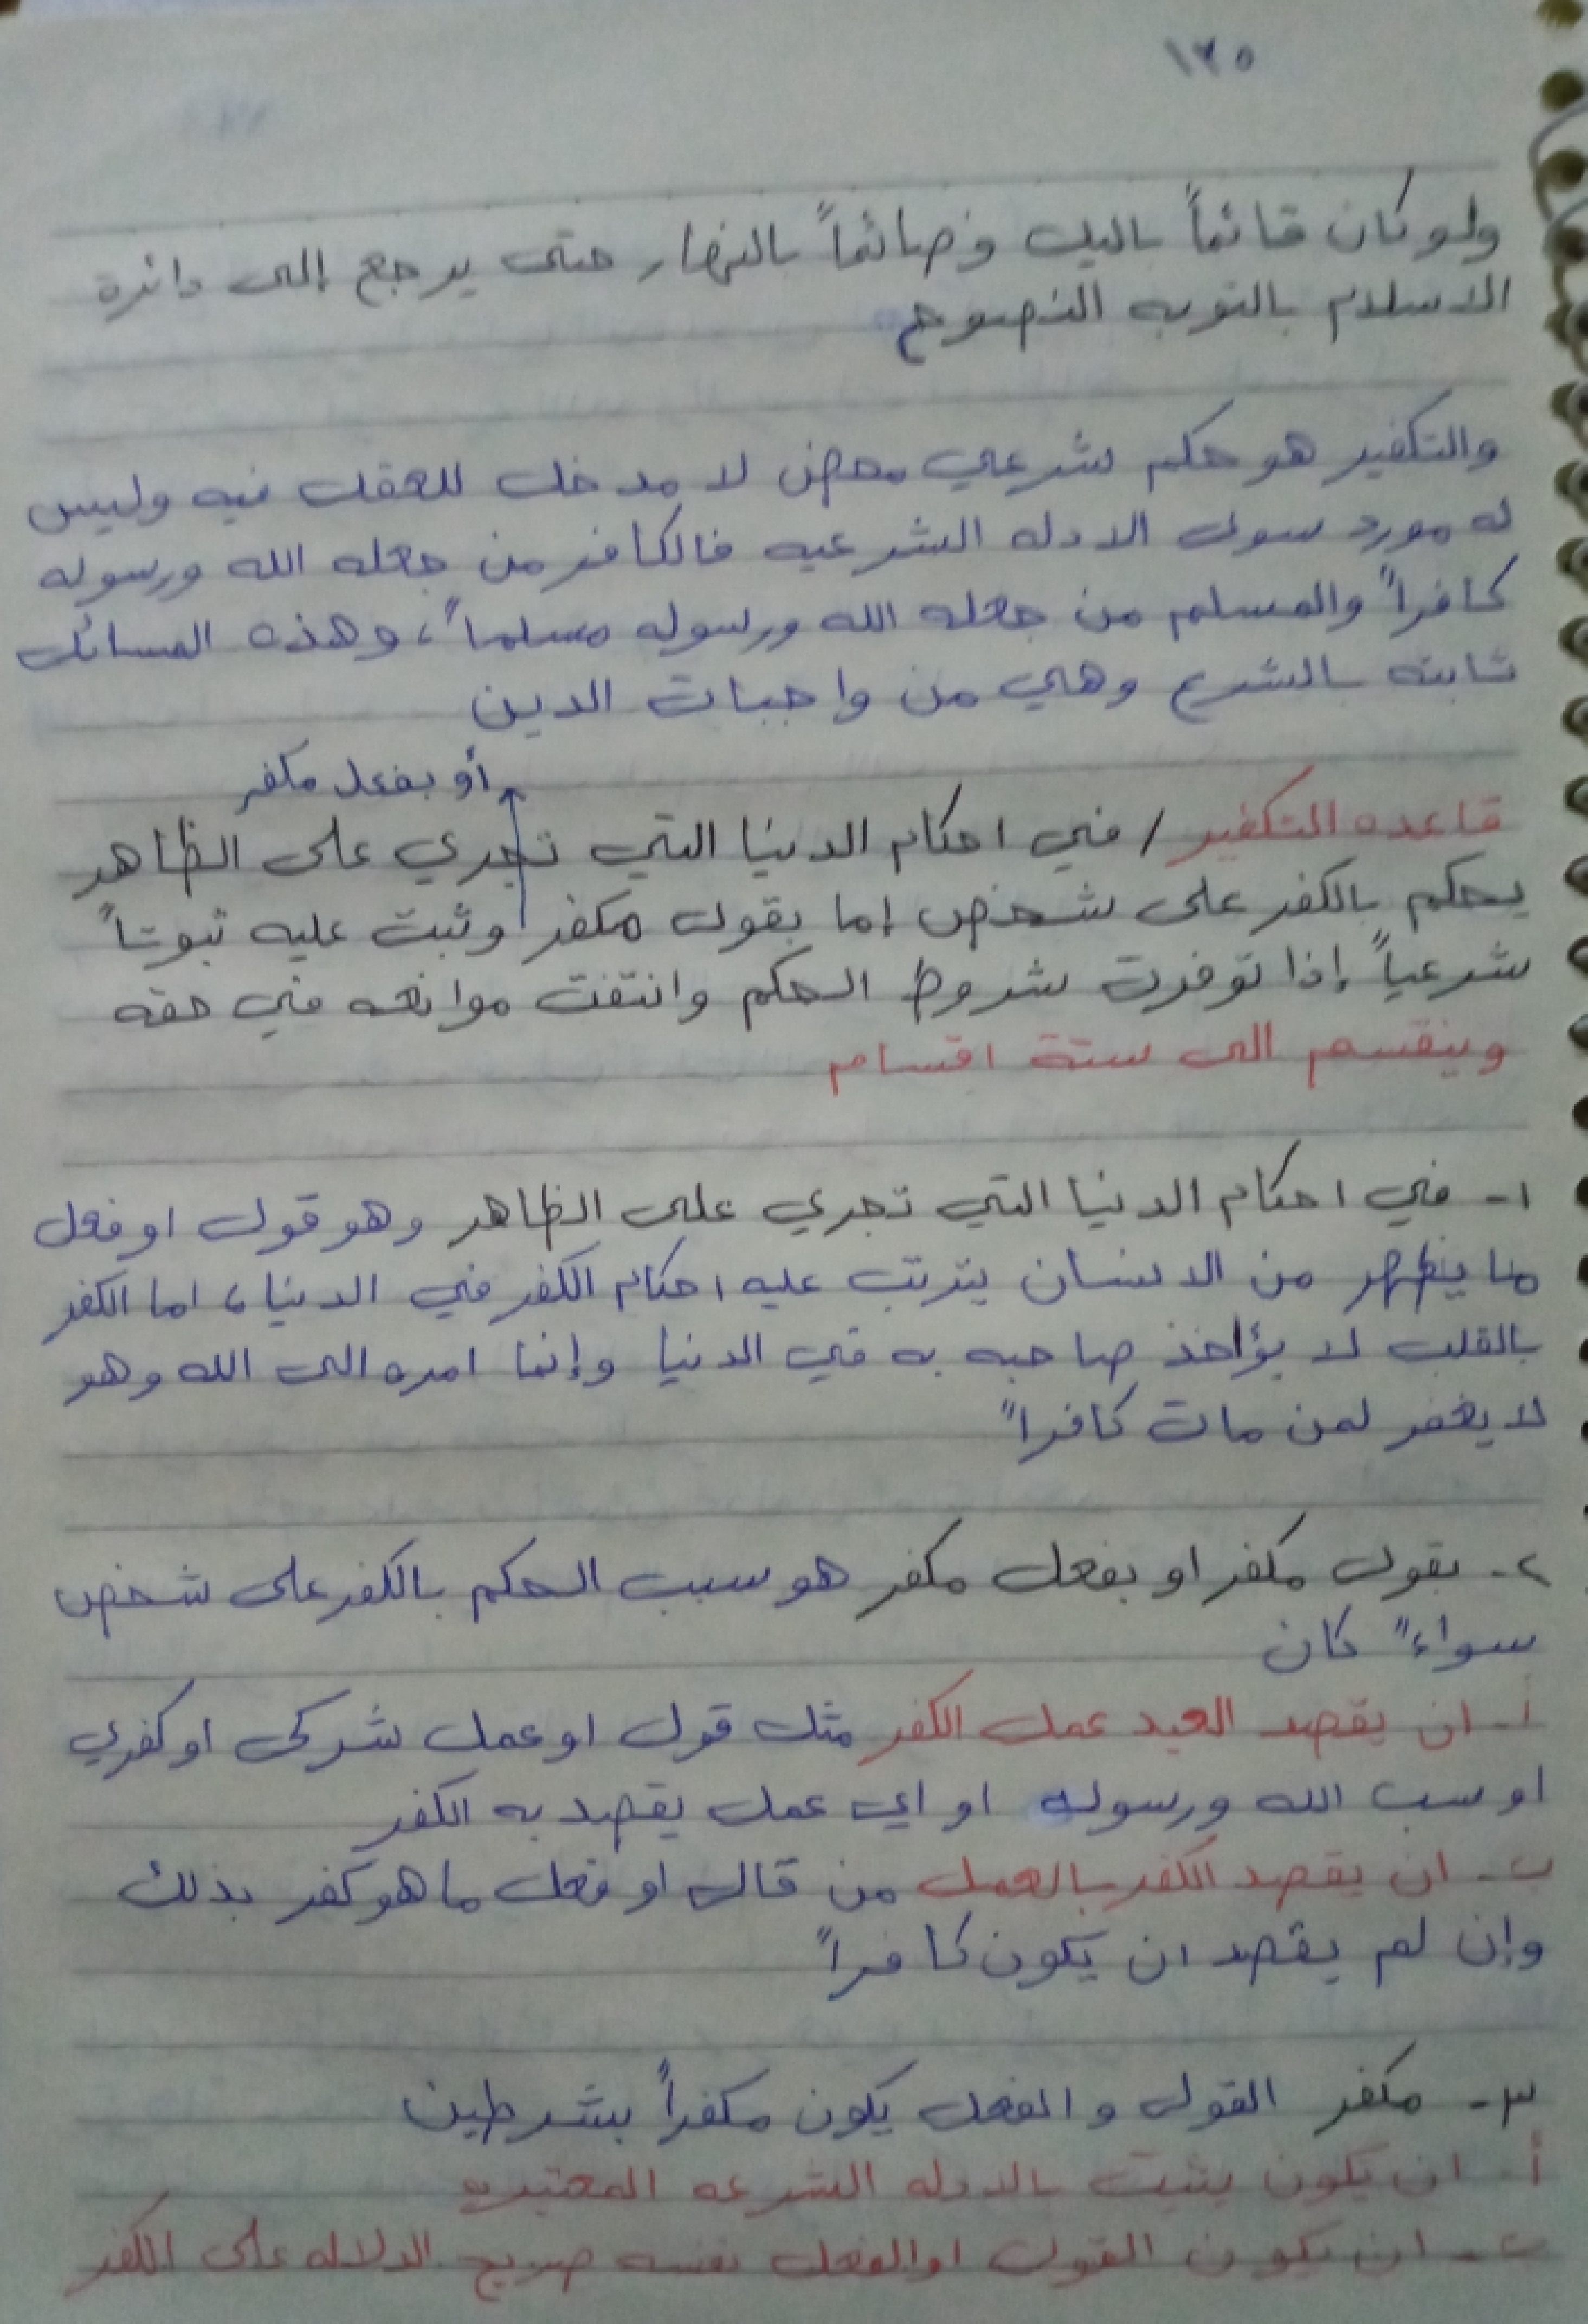 ١٢٥
ولو كان قائماً باليل وصائماً بالنهار حتى يرجع إلى دائرة
الاسلام بالتوبه النصوح
والتكفير هو حكم شرعي محض لا مدخل للعقل فيه وليس
له مورد سوى الادله الشرعيه فالكافر من جعله الله ورسوله
كافراً والمسلم من جعله الله ورسوله مسلماً، وهذه المسائل
ثابته بالشرع وهي من واجبات الدين
أو بفعل مكفر
قاعده التكفير / في احكام الدنيا التي تجري على الظاهر
يحكم بالكفر على شخص إما بقول مكفر وثبت عليه ثبوتاً
شرعياً إذا توفرت شروط الحكم وانتفت موانعه في حقه
وينقسم الى ستة اقسام
١- في احكام الدنيا التي تجري على الظاهر وهو قول او فعل
ما يظهر من الانسان يترتب عليه احكام الكفر في الدنيا، اما الكفر
بالقلب لا يؤاخذ صاحبه به في الدنيا وإنما امره الى الله وهو
لا يغفر لمن مات كافراً
٢- بقول مكفر او بفعل مكفر هو سبب الحكم بالكفر على شخص
سواءً كان
أ- ان يقصد العبد عمل الكفر مثل قول او عمل شركى او كفري
او سب الله ورسوله او اي عمل يقصد به الكفر
ب- ان يقصد الكفر بالعمل من قال او فعل ما هو كفر بذلك
وإن لم يقصد ان يكون كافراً
٣- مكفر القول والفعل يكون مكفراً بشرطين
أ- ان يكون يثبت بالادله الشرعه المعتبره
ب- ان يكون القول او الفعل نفسه صريح الدلاله على الكفر